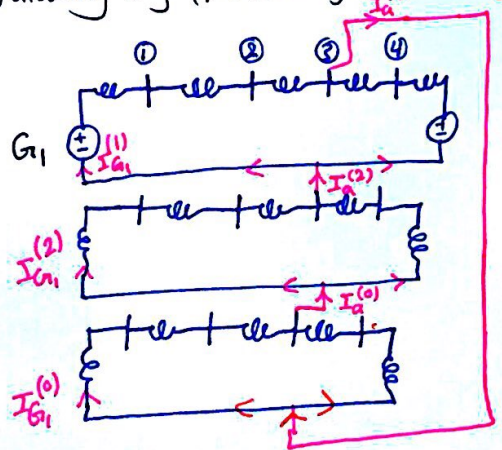 I_a
① ② ③ ④
G_1
I_{G_1}^{(1)}
I_a^{(2)}
I_{G_1}^{(2)}
I_a^{(0)}
I_{G_1}^{(0)}